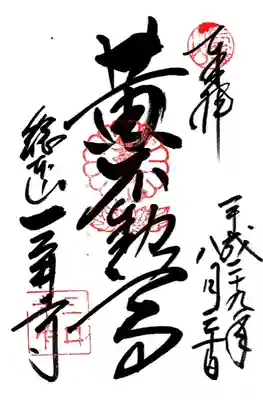 奉拝
平成二十九年
八月三十日
黄不動尊
総本山
三井寺